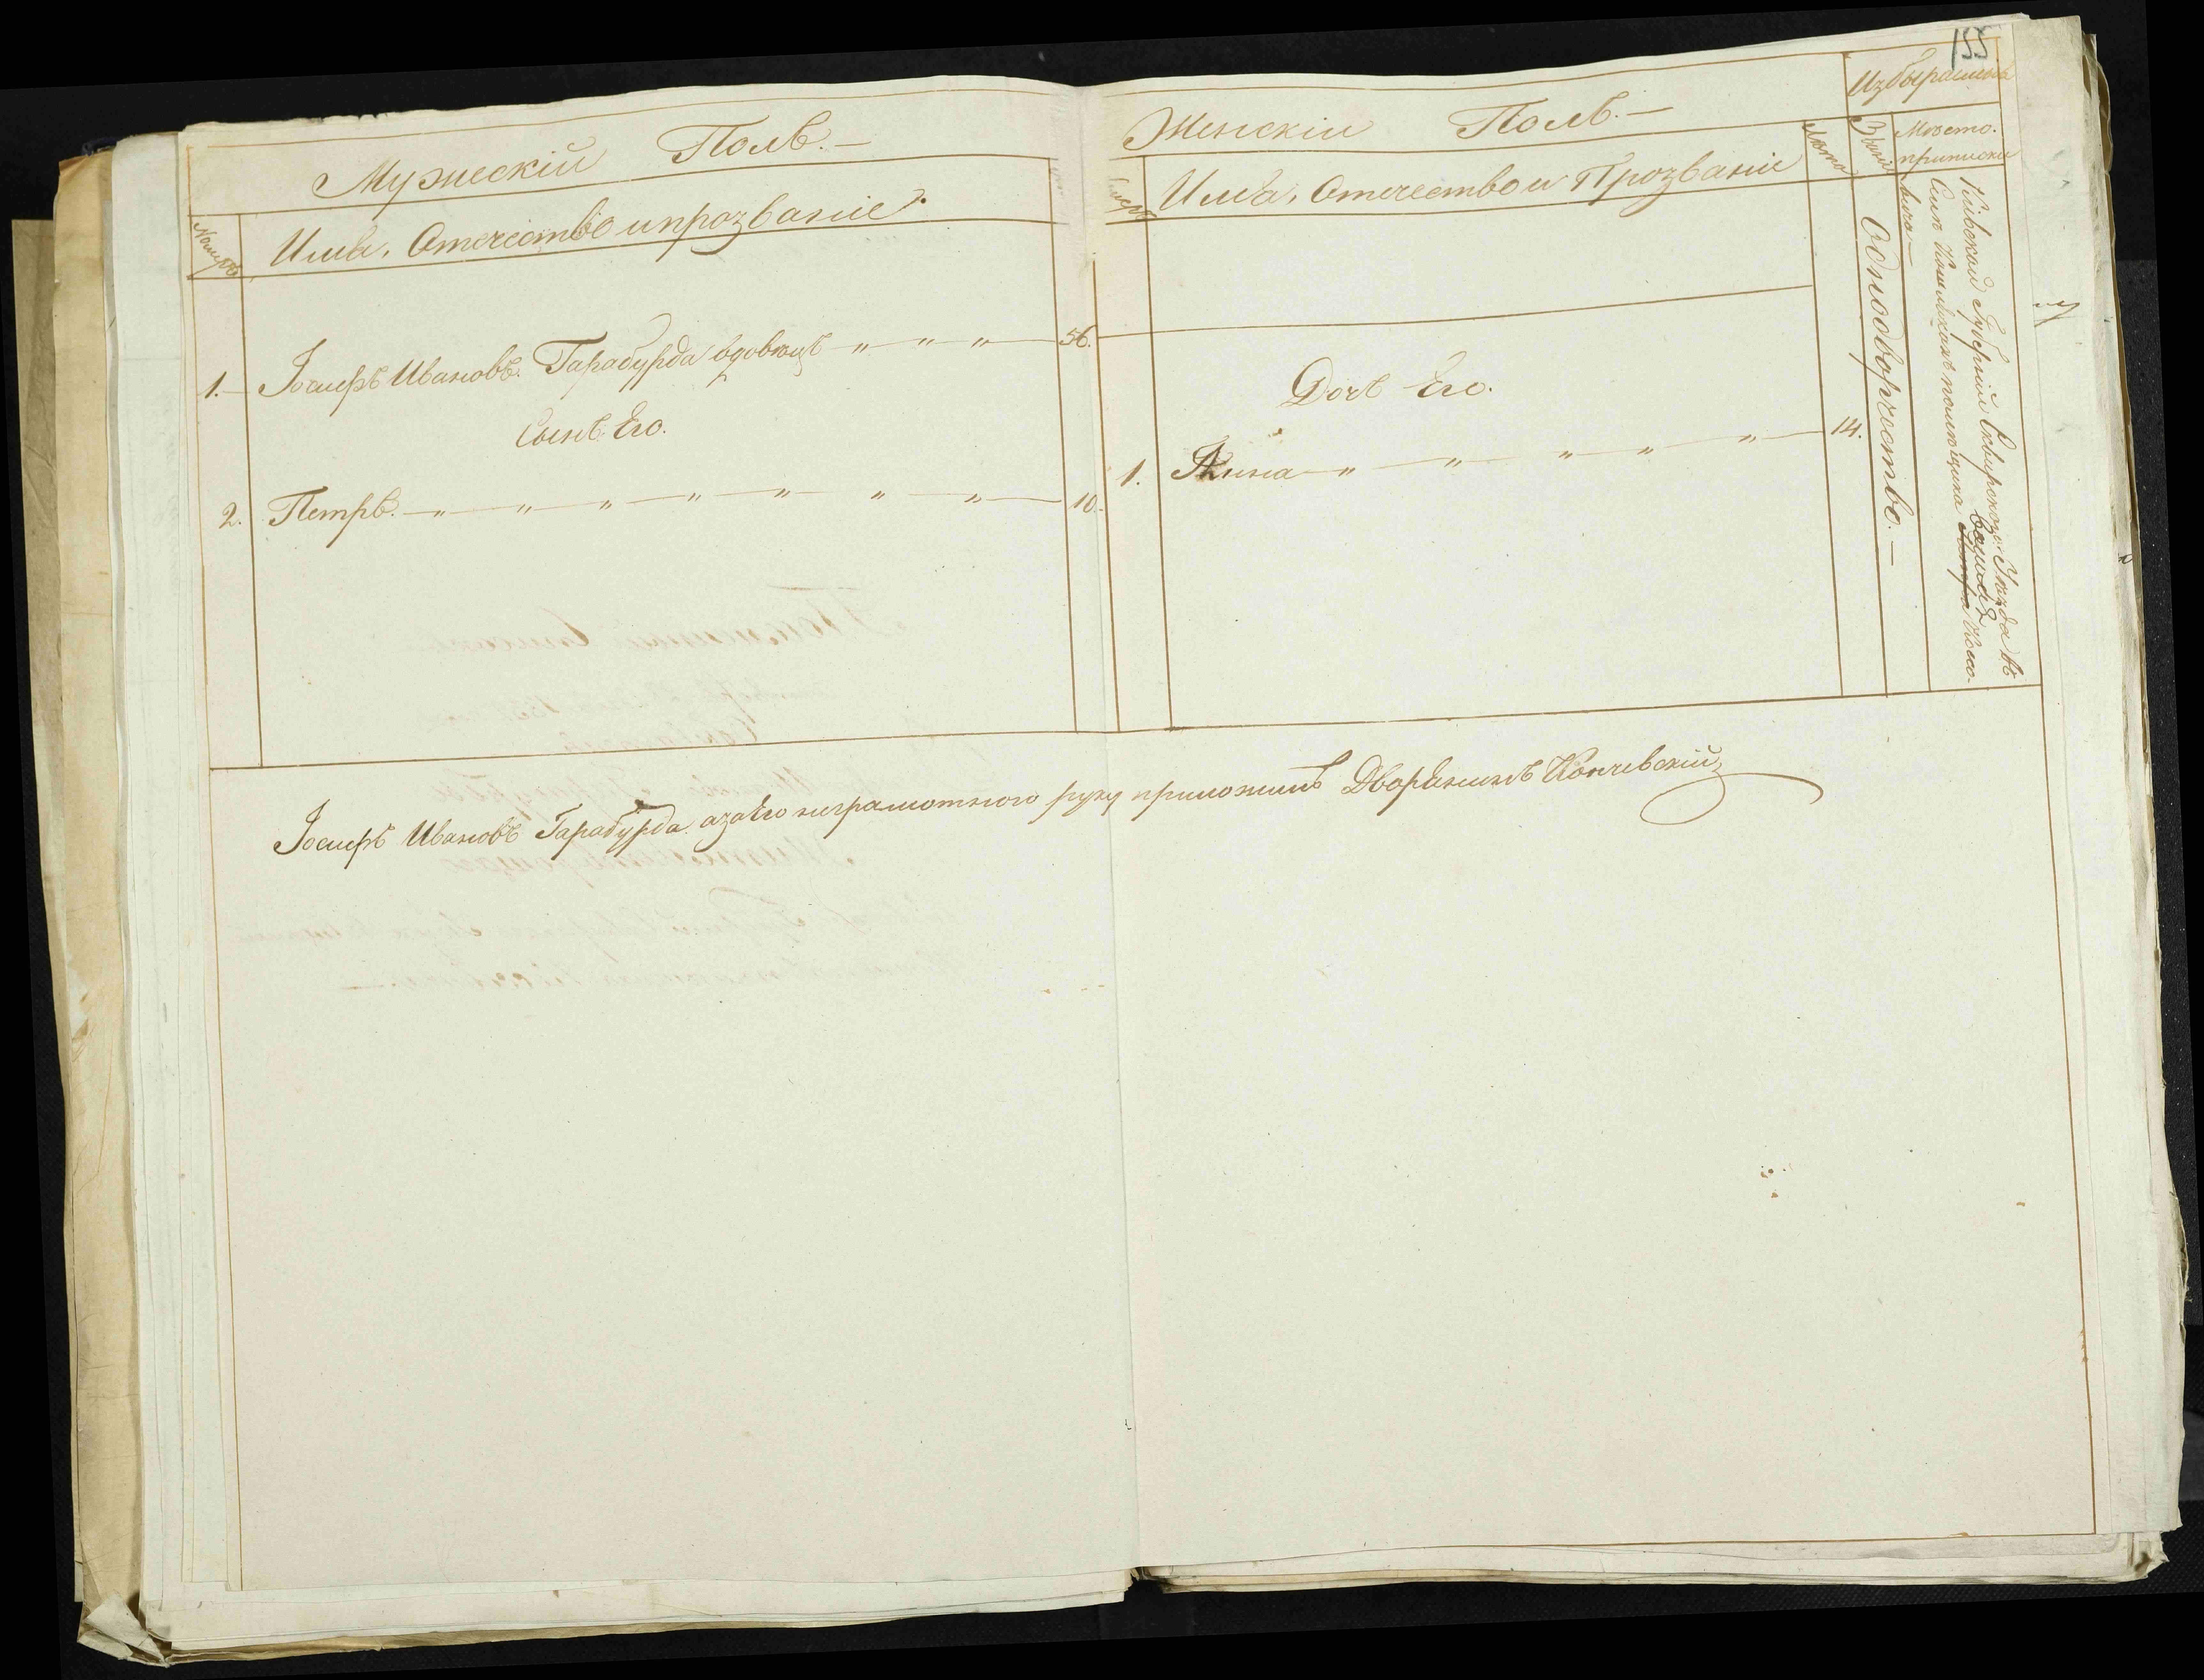 155
Мужескій Полъ.—
Номеръ
Имя, Отечество и прозваніе.
1.— Іосифъ Ивановъ. Гарабурда вдовецъ — " — " — " — 56.
Сынъ Его.
2. Петръ. — " — " — " — " — " — " — " — 10.
Женскій Полъ.—
Имя, Отечество и Прозваніе
Лѣта
Дочь Его.
1. Анна — " — " — " — " — " — 14.
Избыраемыя
Званіе
Мѣсто.
приписки
Однодворчество.—
Кіевской Губерніи Сквирского Уѣзда въ
Селѣ помѣщика
Іосифъ Ивановъ Гарабурда а за Его неграмотного руку приложилъ Дворянинъ Кончевскій